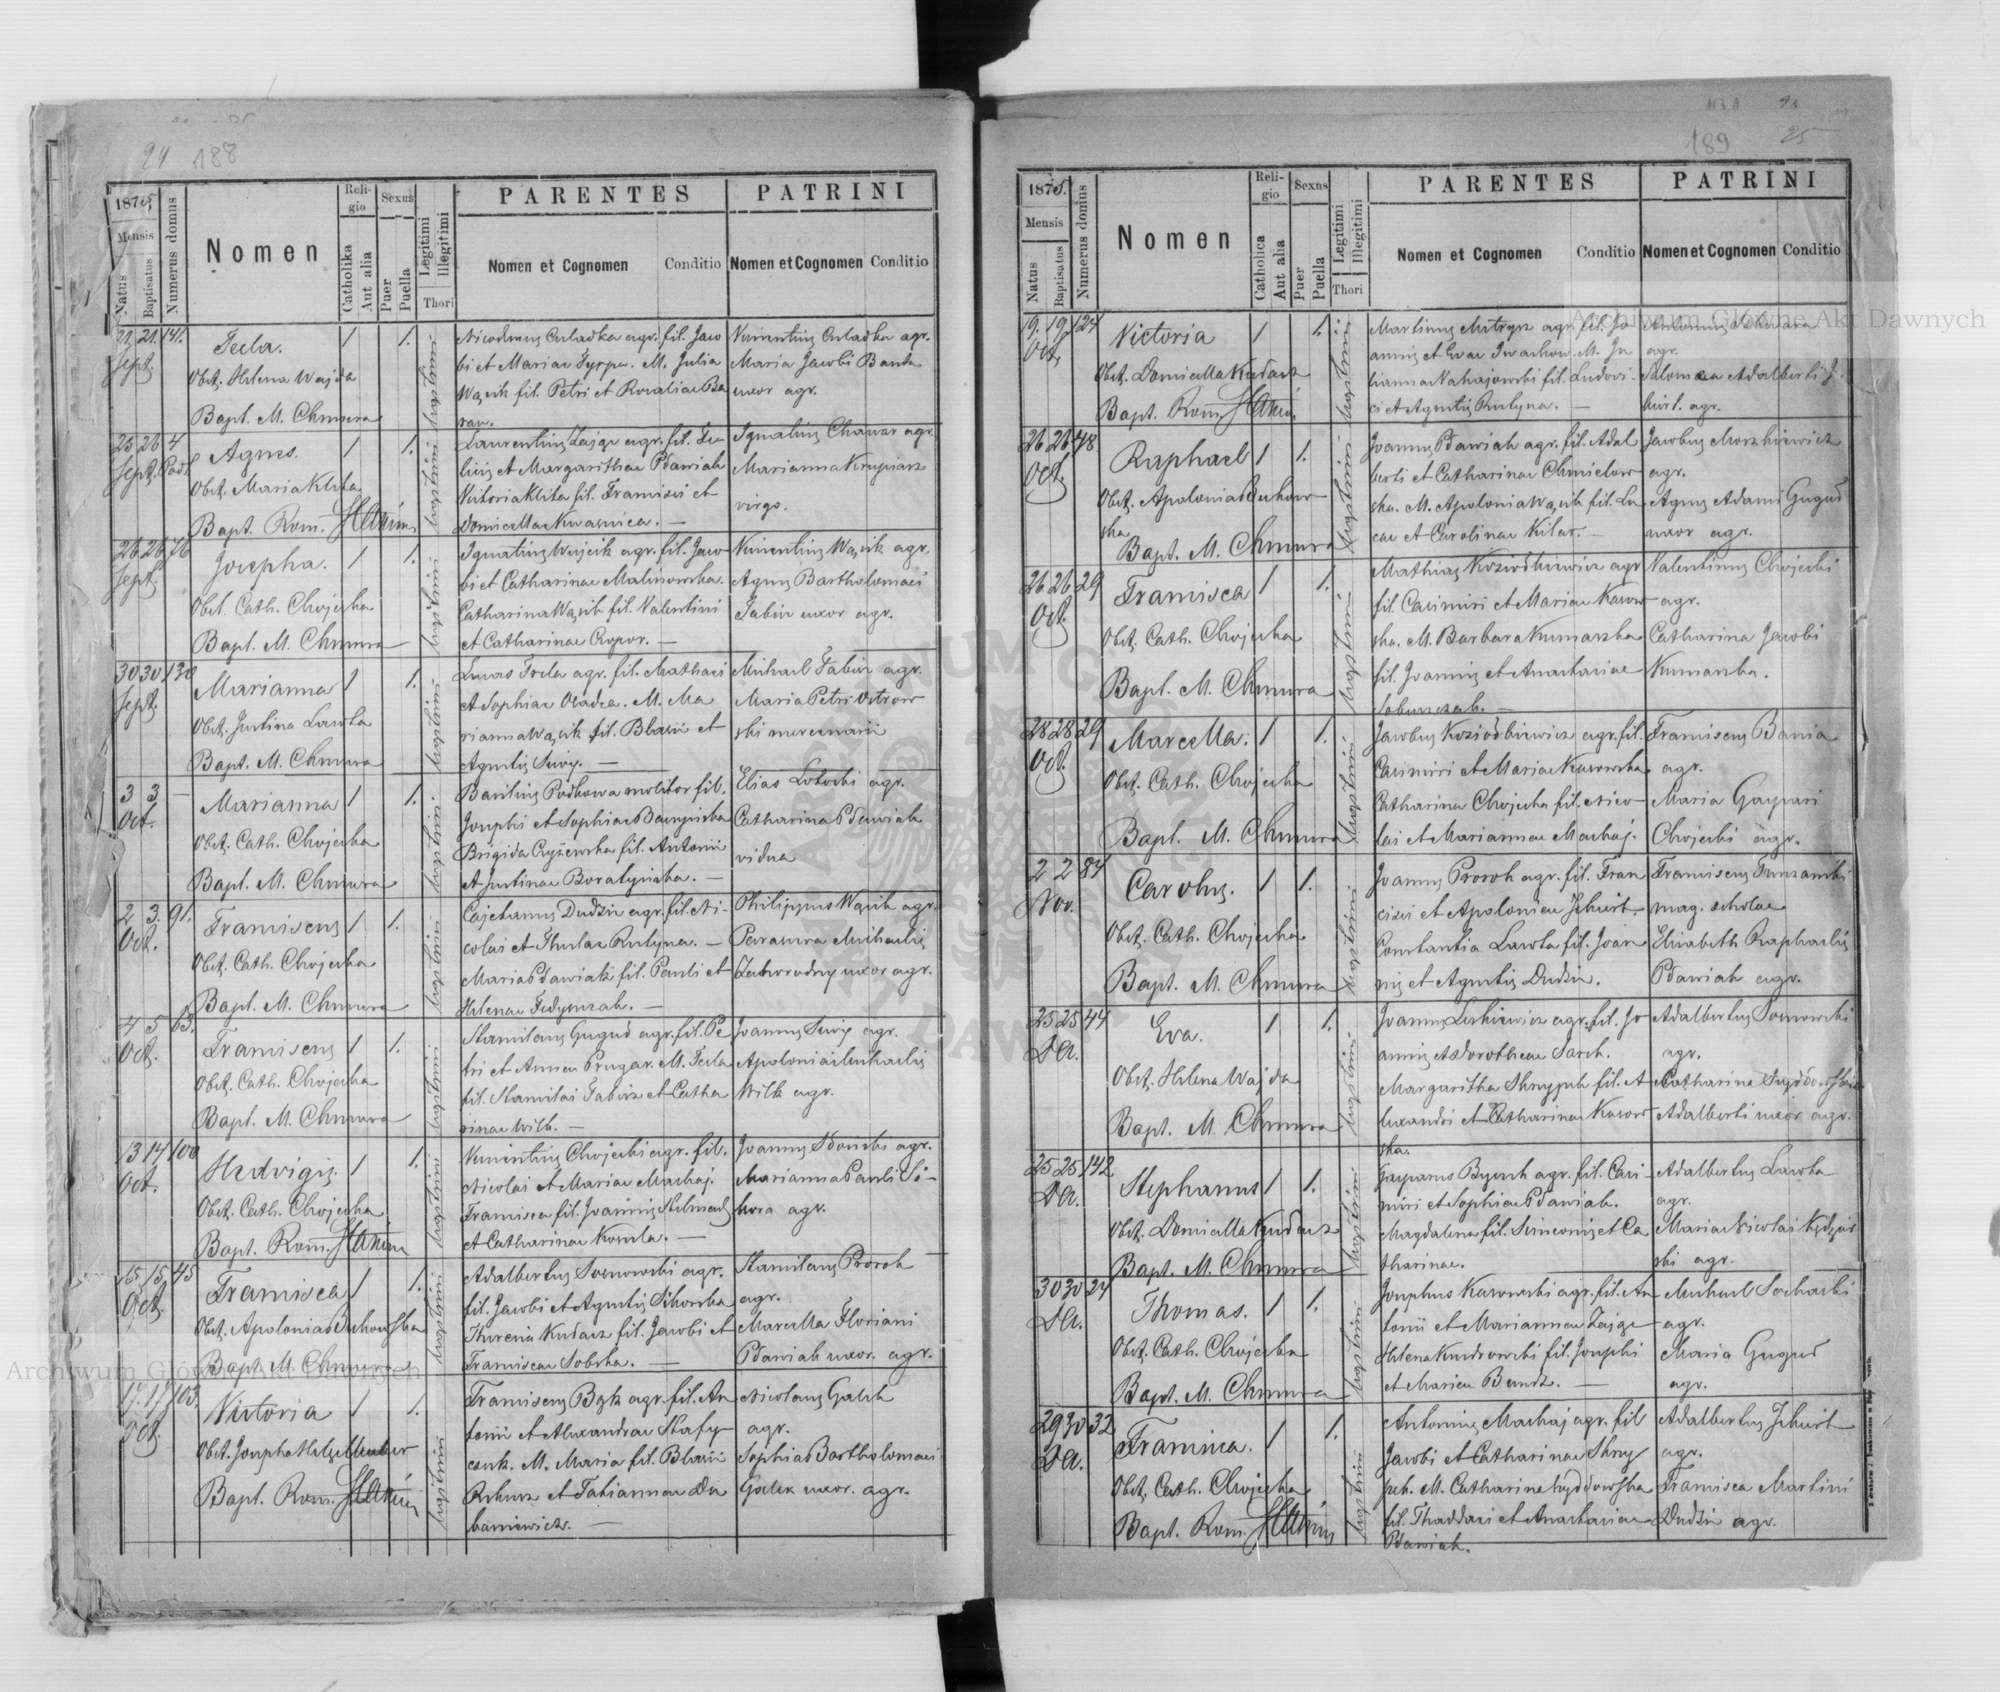 24 188
1875
Mensis
Natus
Baptisatus
Numerus domus
Nomen
Religio
Catholika
Aut alia
Sexus
Puer
Puella
Legitimi
Illegitimi
Thori
PARENTES
Nomen et Cognomen Conditio
PATRINI
Nomen et Cognomen Conditio
21 21 141.
Sept.
Tecla. 1 1.
Obst. Helena Wajda
Bapt. M. Chmura
legitimi
Nicodemus Culadka agr. fil. Jaco
bi et Mariae M. Julia
Wąsik fil. Petri et Rosaliae Ba
ran.
Vincentius Culadka agr.
Maria Jacobi Banda
uxor agr.
25 26 4
Sept.
Agnes. 1 1.
Obst. Maria Klita
Bapt. Rom.
legitimi
Laurentius Zając agr. fil. Fe
licis et Margarithae Pdawiak
Victoria Klita fil. Francisci et
Domicellae Kwasnica. —
Ignatius Chawar agr.
Marianna Krupiarz
virgo.
26 26 76
Sept.
Josepha. 1 1.
Obst. Cath. Chojecka
Bapt. M. Chmura
legitimi
Ignatius Wojcik agr. fil. Jaco
bi et Catharinae Malinowska.
Catharina Wąsik fil. Valentini
et Catharinae Cropor. —
Vincentius Wąsik agr.
Agnes Bartholomaei
Fabin uxor agr.
30 30 130
Sept.
Marianna 1 1.
Obst. Justina Lawka
Bapt. M. Chmura
legitimi
Lucas Focla agr. fil. Mathaei
et Sophiae M. Ma
rianna Wąsik fil. Blasii et
Agnetis Siwy. —
Michael Fabin agr.
Maria Petri Ostrow
ski mercenarii
3 3 —
Oct.
Marianna 1 1.
Obst. Cath. Chojecka
Bapt. M. Chmura
legitimi
Basilius Podkowa molitor fil.
Josephi et Sophiae
Brigida Czyżewska fil. Antonii
et Justinae Boratyńska. —
Elias Lotocki agr.
Catharina Pdawiak
vidua
2 3. 91.
Oct.
Franciscus 1 1.
Obst. Cath. Chojecka
Bapt. M. Chmura
legitimi
Cajetanus Dudzin agr. fil. Ni-
colai et Theclae Rutyna. —
Maria Pdawiak fil. Pauli et
Helenae Fedymczak. —
Philippus Wąsik agr.
Parascva Michaelis
Zahorodny uxor agr.
4 5 63.
Oct.
Franciscus 1 1.
Obst. Cath. Chojecka
Bapt. M. Chmura
legitimi
Stanislaus Gugud agr. fil. Pe
tri et Annae Prugar. M. Tecla
fil. Stanislai Fabin et Catha
rinae Wilk. —
Joannes Siwy agr.
Apolonia Michaelis
Wilk agr.
13 14 100
Oct.
Hedvigis. 1 1.
Obst. Cath. Chojecka
Bapt. Rom.
legitimi
Vincentius Chojecki agr. fil.
Nicolai et Mariae Machaj.
Francisca fil. Joannis Stelmach
et Catharinae Kosela. —
Joannes Słonski agr.
Marianna Pauli Si-
kora agr.
15 15 45
Oct.
Francisca 1 1.
Obst. Apolonia Suchowska
Bapt. M. Chmura
legitimi
Adalbertus Sosnowski agr.
fil. Jacobi et Agnetis Sikorska
Theresia Kudasz fil. Jacobi et
Franciscae Sobska. —
Stanislaus Prorok
agr.
Marcella Floriani
Pdawiak uxor. agr.
17. 17 103.
Oct.
Victoria 1 1.
Obst.
Bapt. Rom.
legitimi
Franciscus Bąk agr. fil. An
tonii et Alexandrae Stafy
M. Maria fil. Blasii
et Fabiannae Du
baniewicz. —
Nicolaus Galek
agr.
Sophia Bartholomaei
Galek uxor. agr.
189 25
1875.
Mensis
Natus
Baptisatus
Numerus domus
Nomen
Religio
Catholica
Aut alia
Sexus
Puer
Puella
Legitimi
Illegitimi
Thori
PARENTES
Nomen et Cognomen Conditio
PATRINI
Nomen et Cognomen Conditio
19. 19. 124
Oct.
Victoria 1 1.
Obst. Domicella Kudasz
Bapt. Rom.
legitimi
Martinus Mitryn agr. fil. Jo
annis et Evae Iwachow. M. Ju
lianna Nahajowski fil. Ludovi-
ci et Agnetis Rutyna. —
Antonius
agr.
Salomea Adalberti J.
agr.
26 26 48
Oct.
Raphael 1 1.
Obst. Apolonia Suchow
ska
Bapt. M. Chmura
legitimi
Joannes Pdawiak agr. fil. Adal
berti et Catharinae Chmielow
ska. M. Apolonia Wąsik fil. Lu
cae et Carolinae Kilar. —
Jacobus Moszkiewicz
agr.
Agnes Adami Gugud
uxor agr.
26 26 29
Oct.
Francisca 1 1.
Obst. Cath. Chojecka
Bapt. M. Chmura
legitimi
Mathias Koziodkiewicz agr
fil. Casimiri et Mariae Kasow
ska. M. Barbara Kumarska
fil. Joannis et Anastasiae
Sobunczak. —
Valentinus Chojecki
agr.
Catharina Jacobi
Kumarska.
28 28 29
Oct.
Marcella. 1 1.
Obst. Cath. Chojecka
Bapt. M. Chmura
legitimi
Jacobus Koziodkiewicz agr. fil.
Casimiri et Mariae Kasowska
Catharina Chojecka fil. Nico
lai et Mariannae Machaj.
Franciscus Bania
agr.
Maria Gaspari
Chojecki agr.
2 2 84
Nov.
Carolus. 1 1.
Obst. Cath. Chojecka
Bapt. M. Chmura
legitimi
Joannes Prorok agr. fil. Fran
cisci et Apoloniae
Constantia Lawka fil. Joan
nis et Agnetis Dudzin.
Franciscus
mag. scholae
Elisabeth Raphaelis
Pdawiak agr.
25 25 44
Eva. 1 1.
Obst. Helena Wajda
Bapt. M. Chmura
legitimi
Joannes Leskiewicz agr. fil. Jo
annis et Dorotheae Sarch.
Margaritha Skrzypek fil. A
lexandri et Catharinae Kasow
ska.
Adalbertus Sosnowski
agr.
Catharina
Adalberti uxor agr.
25 25 142
Stephanus 1 1.
Obst. Domicella Kudasz
Bapt. M. Chmura
legitimi
Gasparus Byczek agr. fil. Casi-
miri et Sophiae Pdawiak.
Magdalena fil. Simeonis et Ca
tharinae.
Adalbertus Lawka
agr.
Maria Nicolai Kędzier
ski agr.
30 30 24
Thomas. 1 1.
Obst. Cath. Chojecka
Bapt. M. Chmura
legitimi
Josephus Kasowski agr. fil. An
tonii et Mariannae Zając
Helena Kudrowski fil. Josephi
et Mariae Bundz. —
Michael Sochacki
agr.
Maria Gugud
agr.
29 30 32
Francisca. 1 1.
Obst. Cath. Chojecka
Bapt. Rom.
legitimi
Antonius Machaj agr. fil
Jacobi et Catharinae Skrzy
pek. M. Catharina
fil. Thaddaei et Anastasiae
Pdawiak.
Adalbertus
agr.
Francisca Martini
Dudzin agr.
Archiwum Główne Akt Dawnych
Archiwum Główne Akt Dawnych